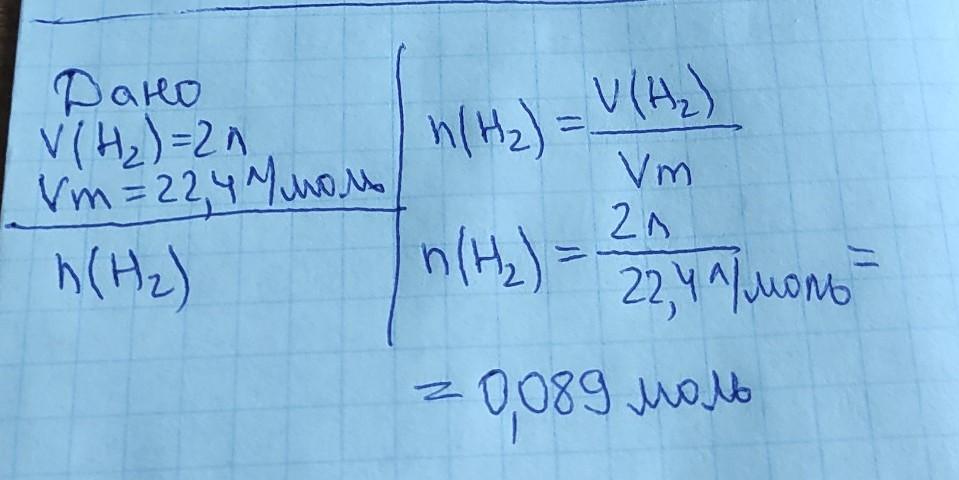 Дано
V(H₂)=2л
Vm=22,4 л/моль
n(H₂)
n(H₂) = V(H₂) / Vm
n(H₂) = 2л / 22,4 л/моль =
= 0,089 моль